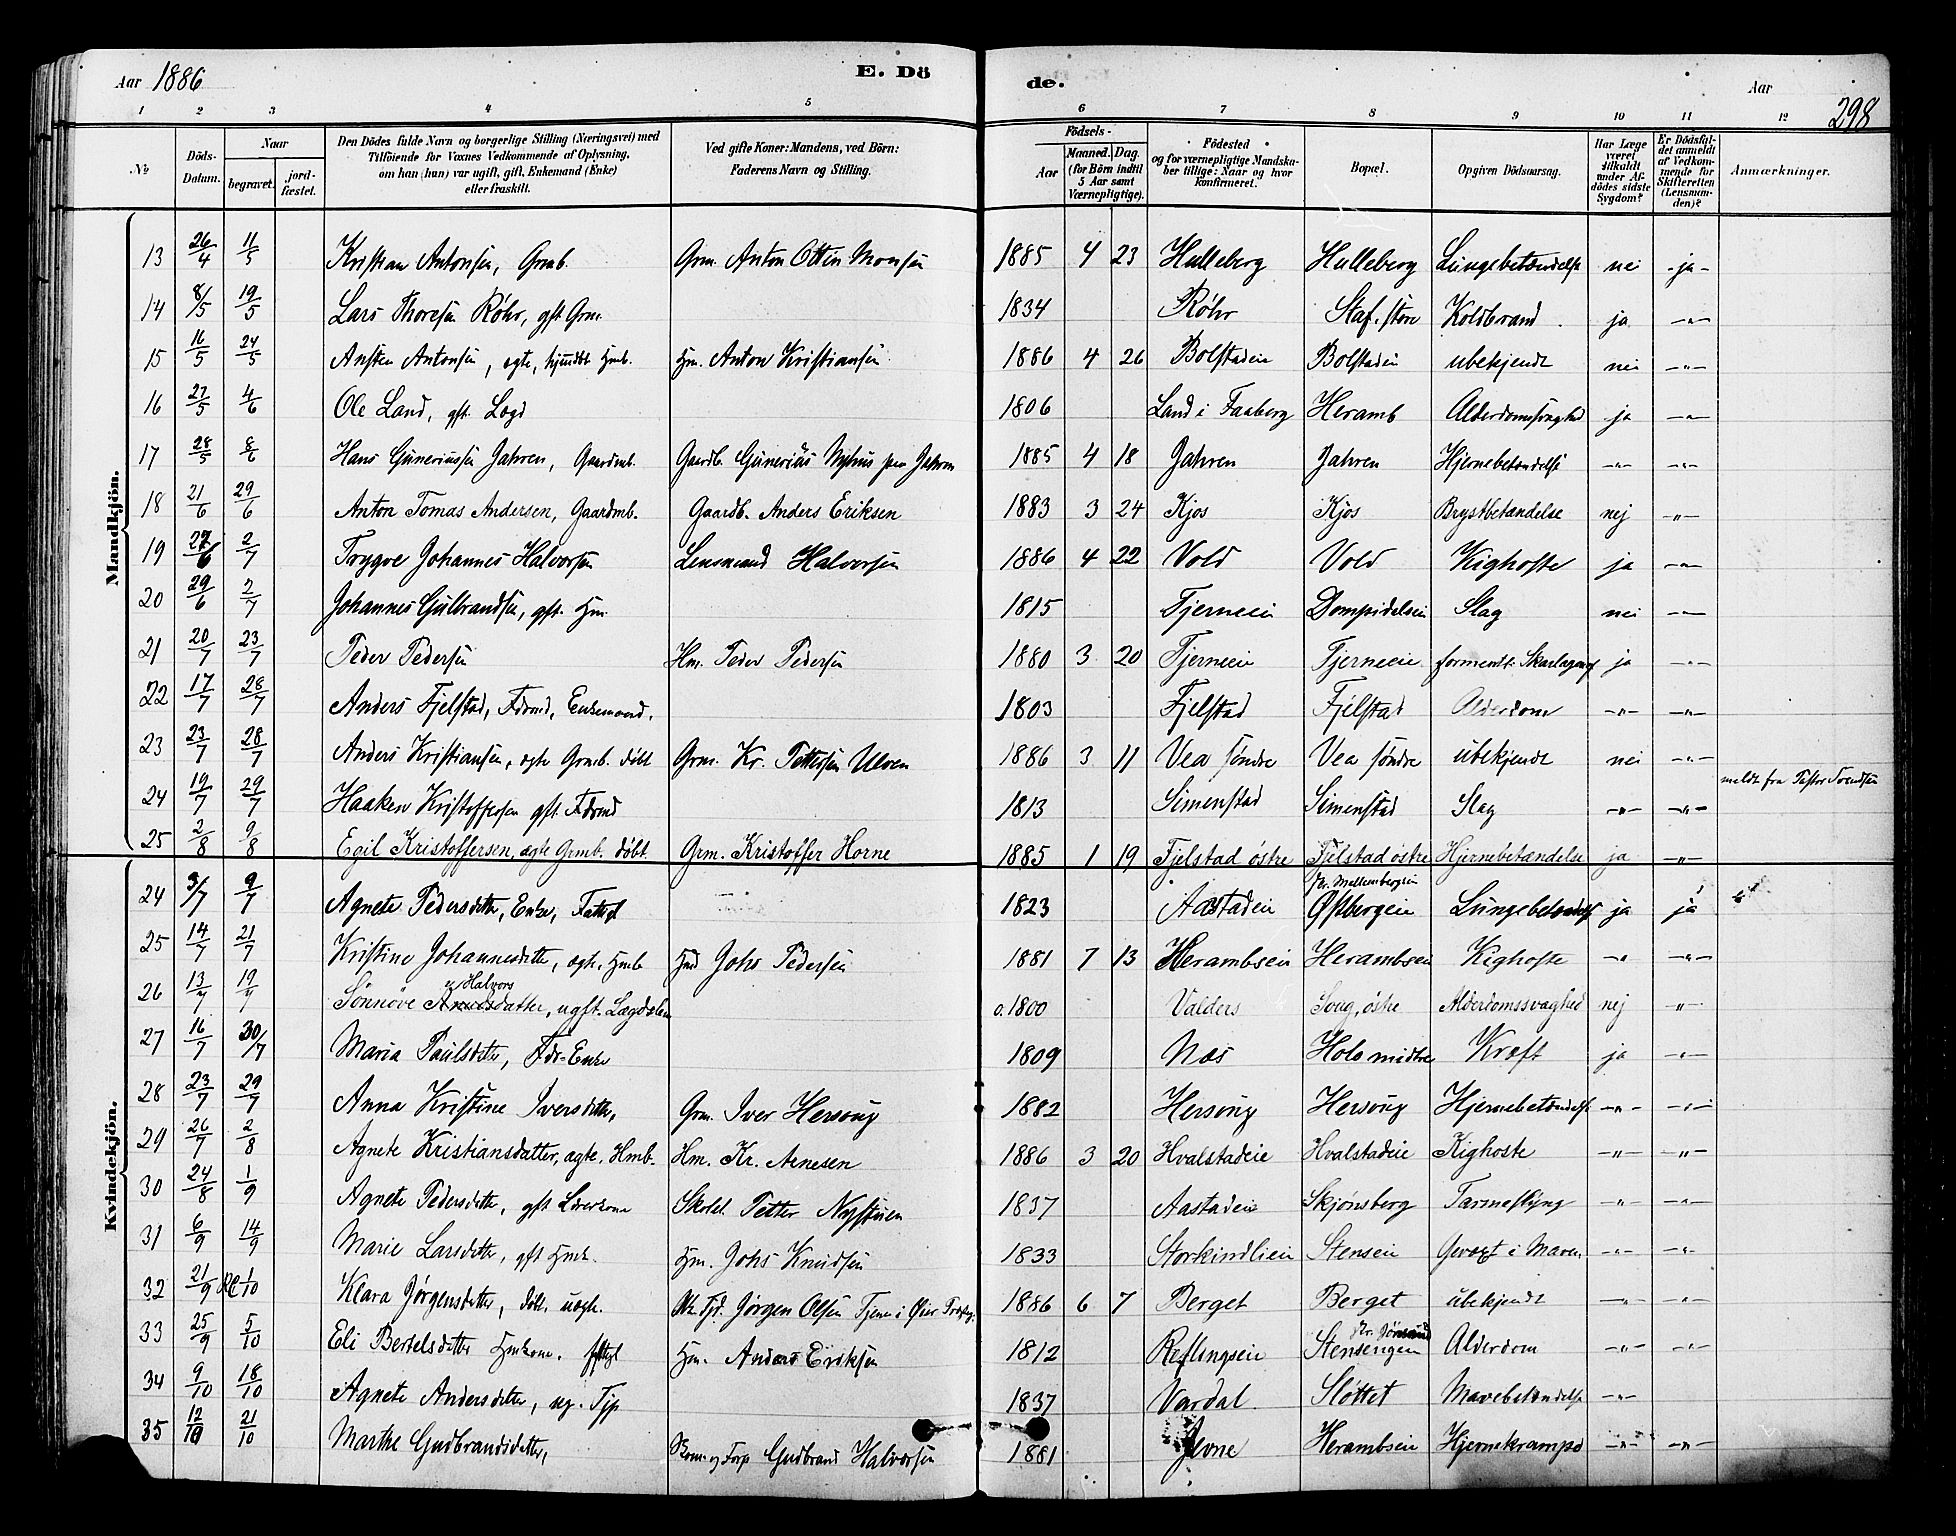 Aar 1886 E. Dö de. Aar 298
1 2 3 4 5 6 7 8 9 10 11 12
No Döds-Datum. Naar begravet. jordfæstet. Den Dödes fulde Navn og borgerlige Stilling (Næringsvei) med Tilföiende for Voxnes Vedkommende af Oplysning, om han (hun) var ugift, gift, Enkemand (Enke) eller fraskilt. Ved gifte Koner: Mandens, ved Börn: Faderens Navn og Stilling. Födsels- Aar Maaned. Dag. (for Börn indtil 5 Aar samt Værnepligtige). Födested og for værnepligtige Mandskaber tillige: Naar og hvor konfirmeret. Bopæl. Opgiven Dödsaarsag. Har Læge været tilkaldt under Afdödes sidste Sygdom? Er Dödsfaldet anmeldt af Vedkommende for Skifteretten (Lensmanden)? Anmærkninger.
Mandkjön.
13 26/4 11/5 Kristian Antonsen, Grmb. Grm. Anton Ottin Monsen 1885 4 23 Hulleberg Hulleberg Lungebetændelse nei -ja-
14 8/5 19/5 Lars Thoresen Røhr, gft Grm. 1834 Røhr Staf. store Koldbrand. ja -"-
15 16/5 24/5 Ansten Antonsen, ægte, hjemdbt Hmb. Hm. Anton Kristiansen 1886 4 26 Bolstadeie Bolstadeie ubekjendt nei -"-
16 27/5 4/6 Ole Land, gft. Lægd 1806 Land i Faaberg Heramb Alderdomssvaghed ja -"-
17 28/5 8/6 Hans Gúneriussen Jahren, Gaardmb. Gaardb. Gúneriús Nyhus paa Jahren 1885 4 18 Jahren Jahren Hjernebetændelse -"- -"-
18 21/6 29/6 Anton Tomas Andersen, Gaardmb. Gaardb. Anders Eriksen 1883 3 24 Kjos Kjos Brystbetændelse nej -"-
19 27/6 2/7 Trygve Johannes Halvorsen Lensmand Halvorsen 1886 4 22 Vold Vold Kighoste ja -"-
20 29/6 2/7 Johannes Gulbrandsen, gft. Hm. 1815 Tjerneeie Dompidalseie Slag nei -"-
21 20/7 23/7 Peder Pedersen Hm. Peder Pedersen 1880 3 20 Tjerneeie Tjerneeie formentl. Skarlagensf ja -"-
22 17/7 28/7 Anders Fjelstad, Fdrmd, Enkemand. 1803 Fjelstad Fjelstad Alderdom -"- -"-
23 23/7 28/7 Anders Kristiansen, ægte Grmb. døbt Grm. Kr. Pettersen Ulven 1886 3 11 Vea søndre Vea søndre ubekjendt nei -"-
24 19/7 29/7 Haaken Kristoffersen gft. Fdrmd 1813 Simenstad Simenstad Slag -"- -"- meldt fra Pastor Svendsen
25 2/8 9/8 Egil Kristoffersen, ægte Grmb. døbt. Grm. Kristoffer Horne 1885 1 19 Fjelstad østre Fjelstad østre Hjernebetændelse ja -"-
Kvindekjön.
24 3/7 9/7 Agnete Pedersdtter, Enke, Fattigl 1823 Aastadeie Østbergeie Lungebetændelse ja ja
25 14/7 21/7 Kristine Johannesdtter, ægte, Hmb Hmd Johs Pedersen 1881 7 13 Herambseie Herambseie Kighoste -" -"-
26 13/7 19/7 Sönnöve Halvorsdatter, ugft. Lægdslem o. 1800 Valders Svug, østre Alderdomssvaghed nej -"-
27 16/7 30/7 Maria Paulsdtter, Fdr-Enke 1809 Næs Holo midtre Kræft ja -"-
28 23/7 29/7 Anna Kristine Iversdtter, Grm. Iver Hersoug 1882 Hersoug Hersoug Hjernebetændelse -"- -"-
29 26/7 2/8 Agnete Kristiansdatter, ægte, Hmb. Hm. Kr. Arnesen 1886 3 20 Hvalstadeie Hvalstadeie Kighoste -"- -"-
30 24/8 1/9 Agnete Pedersdtter, gft Lærerkone Skolel. Petter Nystuen 1837 Aastadeie Skjønsberg Tarmeslyng -"- -"-
31 6/9 14/9 Marie Larsdtter, gft Hmk. Hm. Johs Knudsen 1833 Storkindlieie Stenseie Gevæxt i Maven -"- -"-
32 21/9 1/10 Klara Jørgensdtter, døbt, uægte. Jørgen Olsen Tjener i Øier 1886 6 7 Berget Berget ubekjendt -"- -"-
33 25/9 5/10 Eli Bertelsdtter Hmkone. Hm. Anders Eriksen 1812 Reflingseie Stensengen Alderdom -"- -"-
34 9/10 18/10 Agnete Andersdtter, ug. Tjp 1837 Vardal Sløttet Mavebetændelse -"-
35 12/10 21/10 Marthe Gudbrandsdtter, Gudbrand Halvorsen 1881 Jevne Herambseie Hjernekrampe -"- -"-